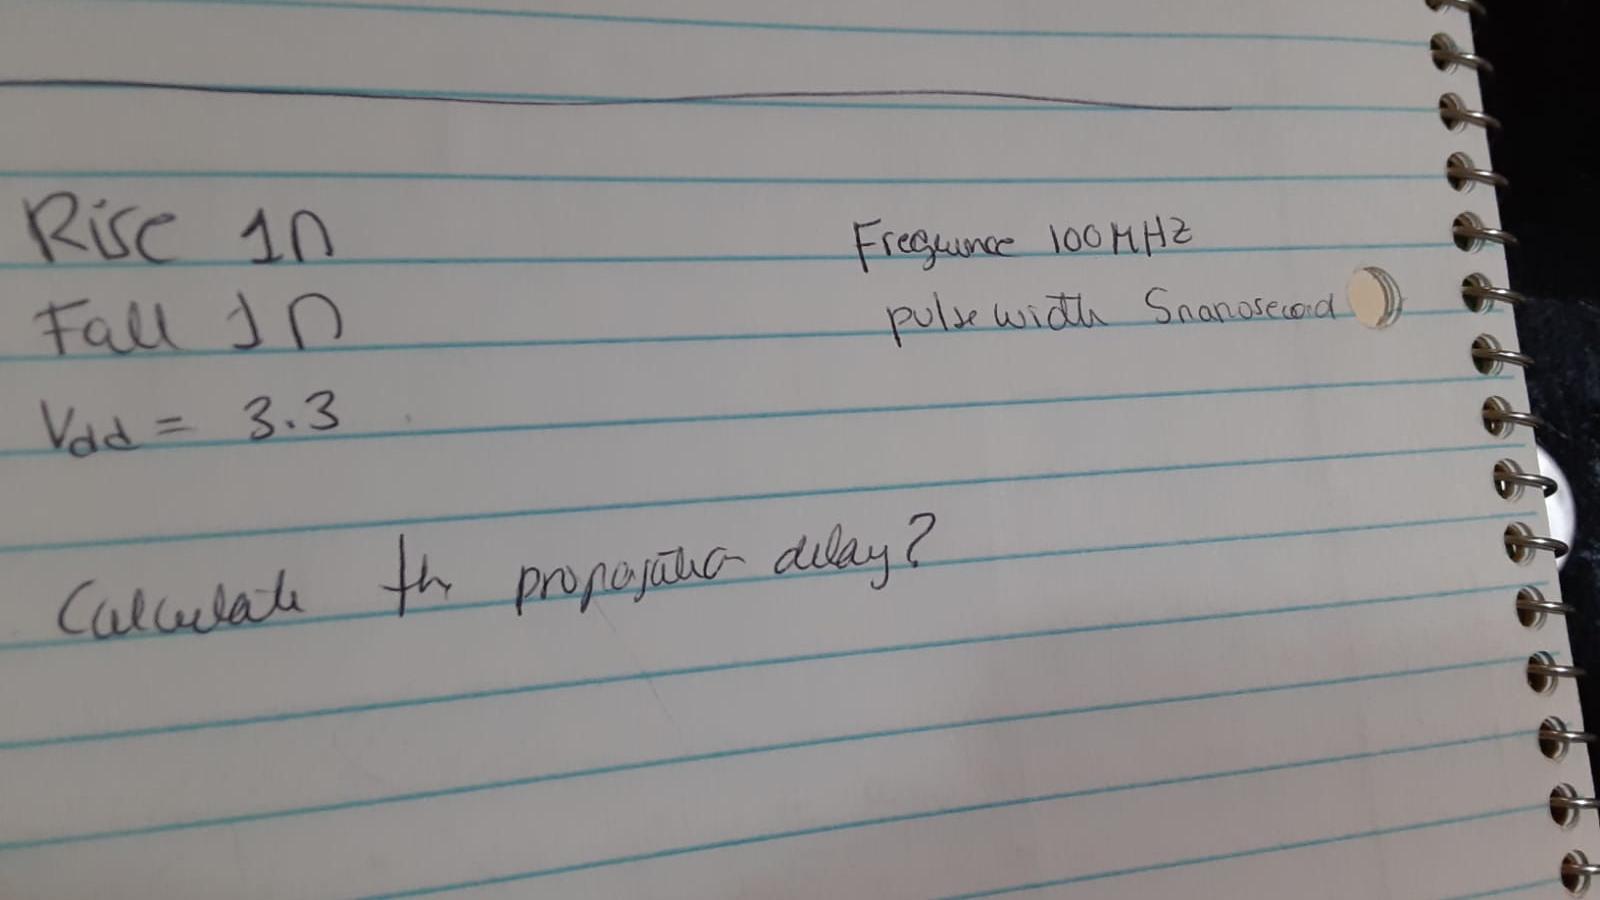 Rise 1n
Fall 1n
Vdd = 3.3
Frequence 100MHZ
pulse width 5nanosecond
Calculate the propagation delay?